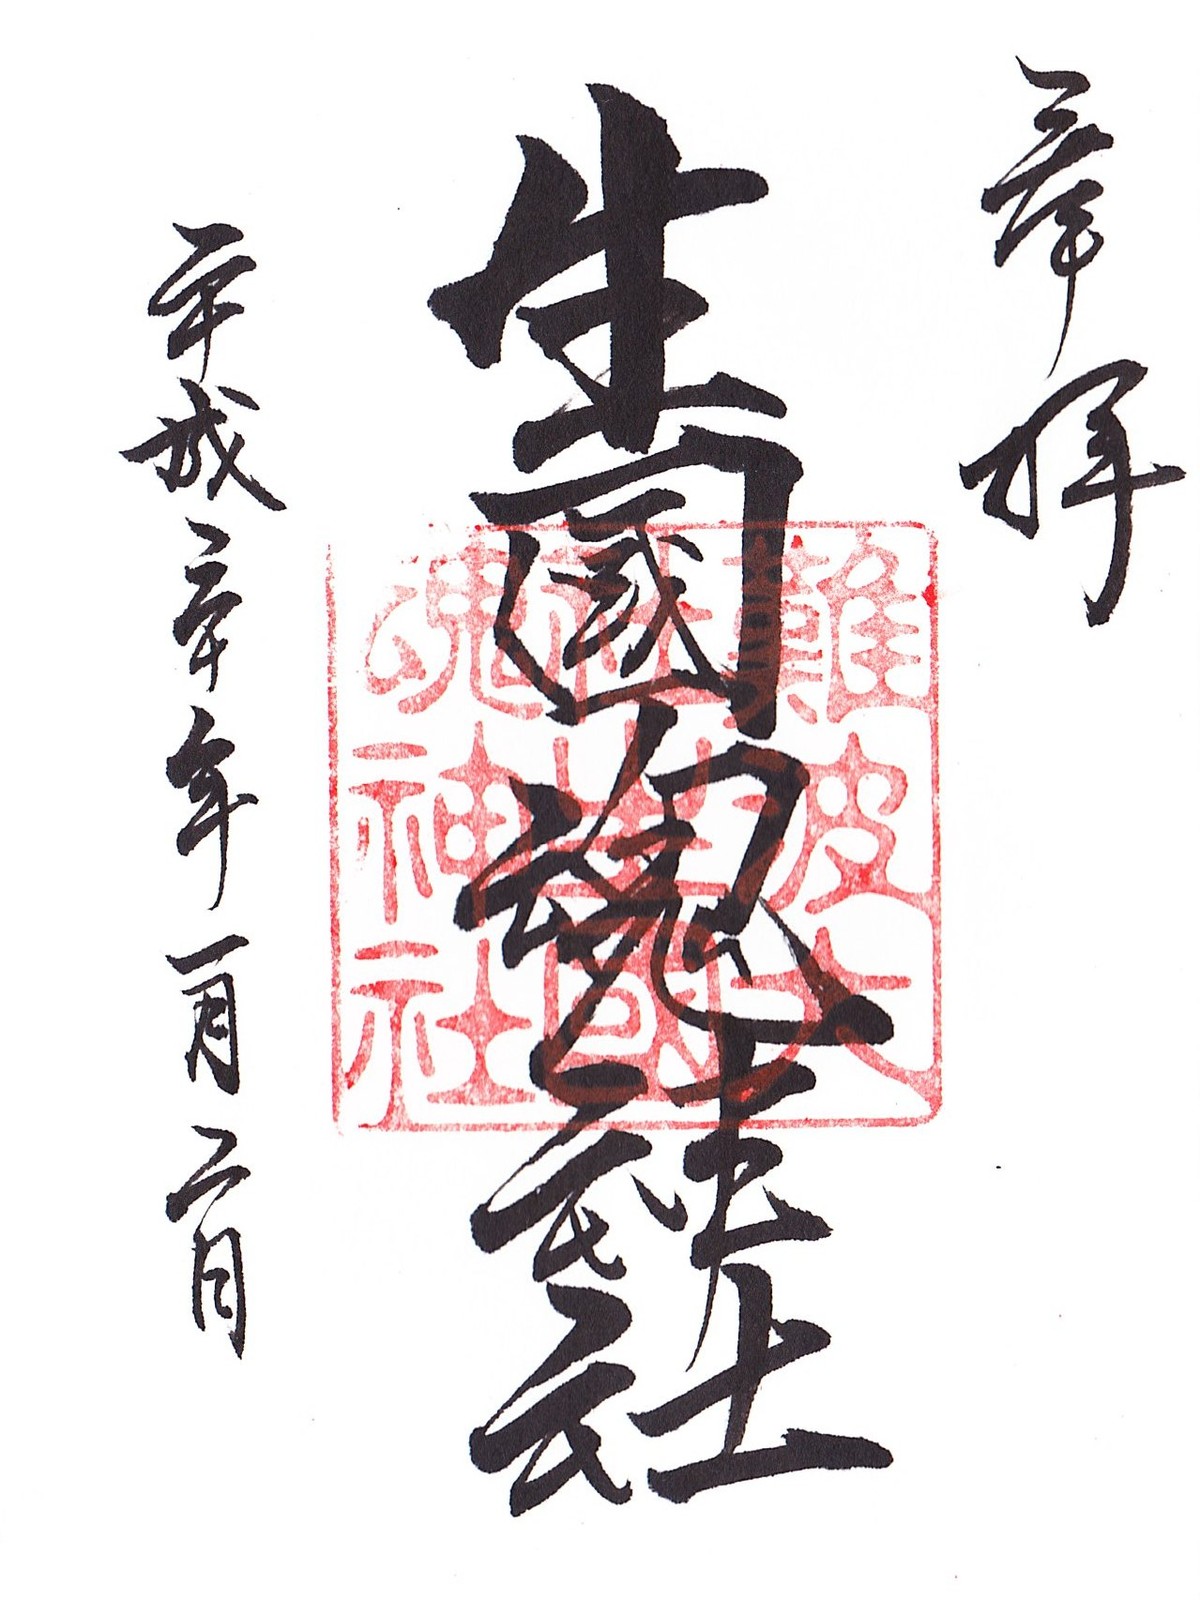 奉拝
生國魂神社
難波大
社生國
魂神社
平成二十年一月二日